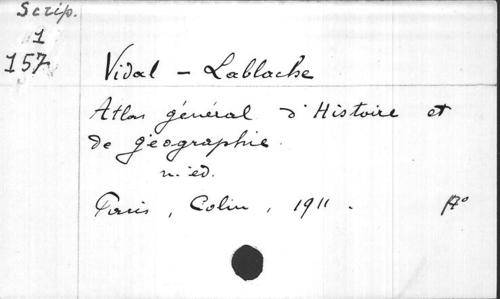 Scrip.
1
157
Vidal - Lablache
Atlas général d'Histoire et
de géographie.
n. éd.
Paris, Colin, 1911.